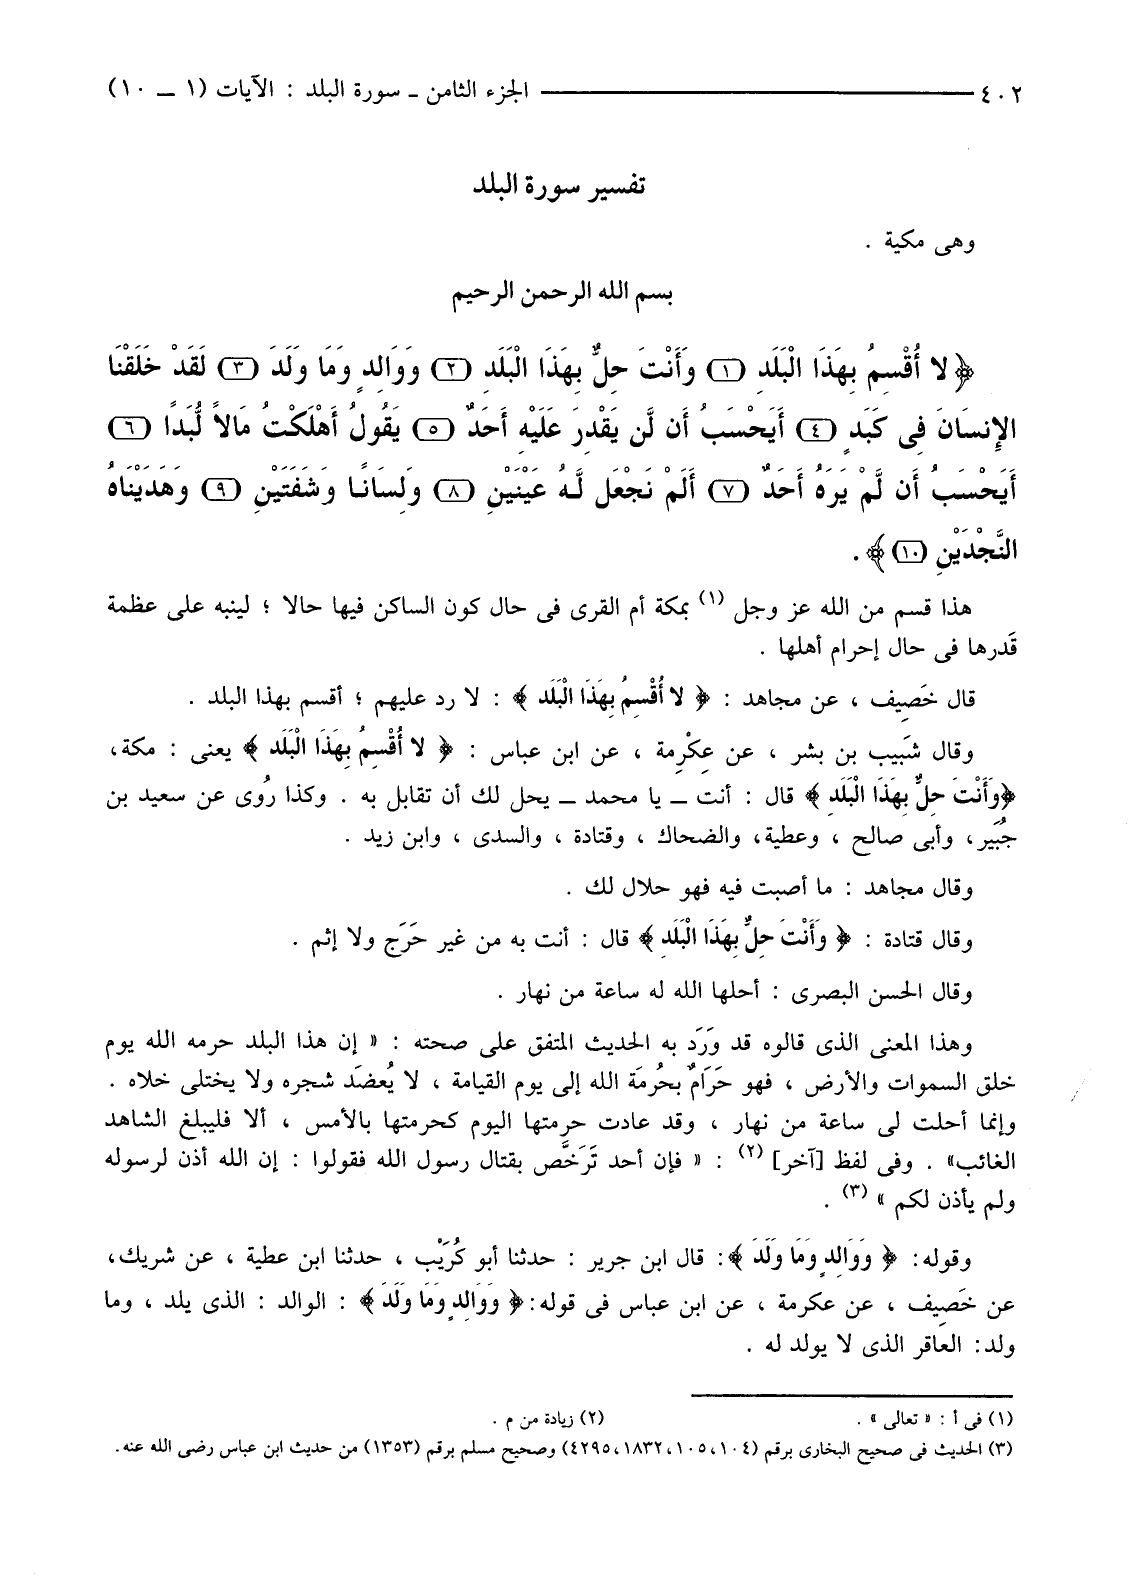 ٤٠٢ ــــــــــــــــــــ الجزء الثامن ـ سورة البلد : الآيات (١ ــ ١٠)
تفسير سورة البلد
وهى مكية .
بسم الله الرحمن الرحيم
﴿ لا أُقْسِمُ بِهَذَا الْبَلَدِ (١) وَأَنْتَ حِلٌّ بِهَذَا الْبَلَدِ (٢) وَوَالِدٍ وَمَا وَلَدَ (٣) لَقَدْ خَلَقْنَا
الإِنسَانَ فِى كَبَدٍ (٤) أَيَحْسَبُ أَن لَّن يَقْدِرَ عَلَيْهِ أَحَدٌ (٥) يَقُولُ أَهْلَكْتُ مَالاً لُّبَدًا (٦)
أَيَحْسَبُ أَن لَّمْ يَرَهُ أَحَدٌ (٧) أَلَمْ نَجْعَل لَّهُ عَيْنَيْنِ (٨) وَلِسَانًا وَشَفَتَيْنِ (٩) وَهَدَيْنَاهُ
النَّجْدَيْنِ (١٠) ﴾ .
هذا قسم من الله عز وجل (١) بمكة أم القرى فى حال كون الساكن فيها حالا ؛ لينبه على عظمة
قَدرها فى حال إحرام أهلها .
قال خَصِيف ، عن مجاهد : ﴿ لا أُقْسِمُ بِهَذَا الْبَلَدِ ﴾ : لا رد عليهم ؛ أقسم بهذا البلد .
وقال شَبِيب بن بشر ، عن عِكْرِمة ، عن ابن عباس : ﴿ لا أُقْسِمُ بِهَذَا الْبَلَدِ ﴾ يعنى : مكة ،
﴿وَأَنْتَ حِلٌّ بِهَذَا الْبَلَدِ ﴾ قال : أنت ــ يا محمد ــ يحل لك أن تقابل به . وكذا رُوى عن سعيد بن
جُبَير، وأبى صالح ، وعطية، والضحاك ، وقتادة ، والسدى ، وابن زيد .
وقال مجاهد : ما أصبت فيه فهو حلال لك .
وقال قتادة : ﴿ وَأَنْتَ حِلٌّ بِهَذَا الْبَلَدِ ﴾ قال : أنت به من غير حَرَج ولا إثم .
وقال الحسن البصرى : أحلها الله له ساعة من نهار .
وهذا المعنى الذى قالوه قد وَرَد به الحديث المتفق على صحته : « إن هذا البلد حرمه الله يوم
خلق السموات والأرض ، فهو حَرَامٌ بحُرمَة الله إلى يوم القيامة ، لا يُعضَد شجره ولا يختلى خلاه .
وإنما أحلت لى ساعة من نهار ، وقد عادت حرمتها اليوم كحرمتها بالأمس ، ألا فليبلغ الشاهد
الغائب» . وفى لفظ [آخر] (٢) : « فإن أحد تَرَخَّص بقتال رسول الله فقولوا : إن الله أذن لرسوله
ولم يأذن لكم » (٣) .
وقوله: ﴿ وَوَالِدٍ وَمَا وَلَدَ ﴾: قال ابن جرير : حدثنا أبو كُرَيْب ، حدثنا ابن عطية ، عن شريك،
عن خَصِيف ، عن عكرمة ، عن ابن عباس فى قوله: ﴿ وَوَالِدٍ وَمَا وَلَدَ ﴾ : الوالد : الذى يلد ، وما
ولد: العاقر الذى لا يولد له .
(١) فى أ : « تعالى » . (٢) زيادة من م .
(٣) الحديث فى صحيح البخارى برقم (١٠٤ ،١٠٥ ،١٨٣٢ ،٤٢٩٥) وصحيح مسلم برقم (١٣٥٣) من حديث ابن عباس رضى الله عنه.